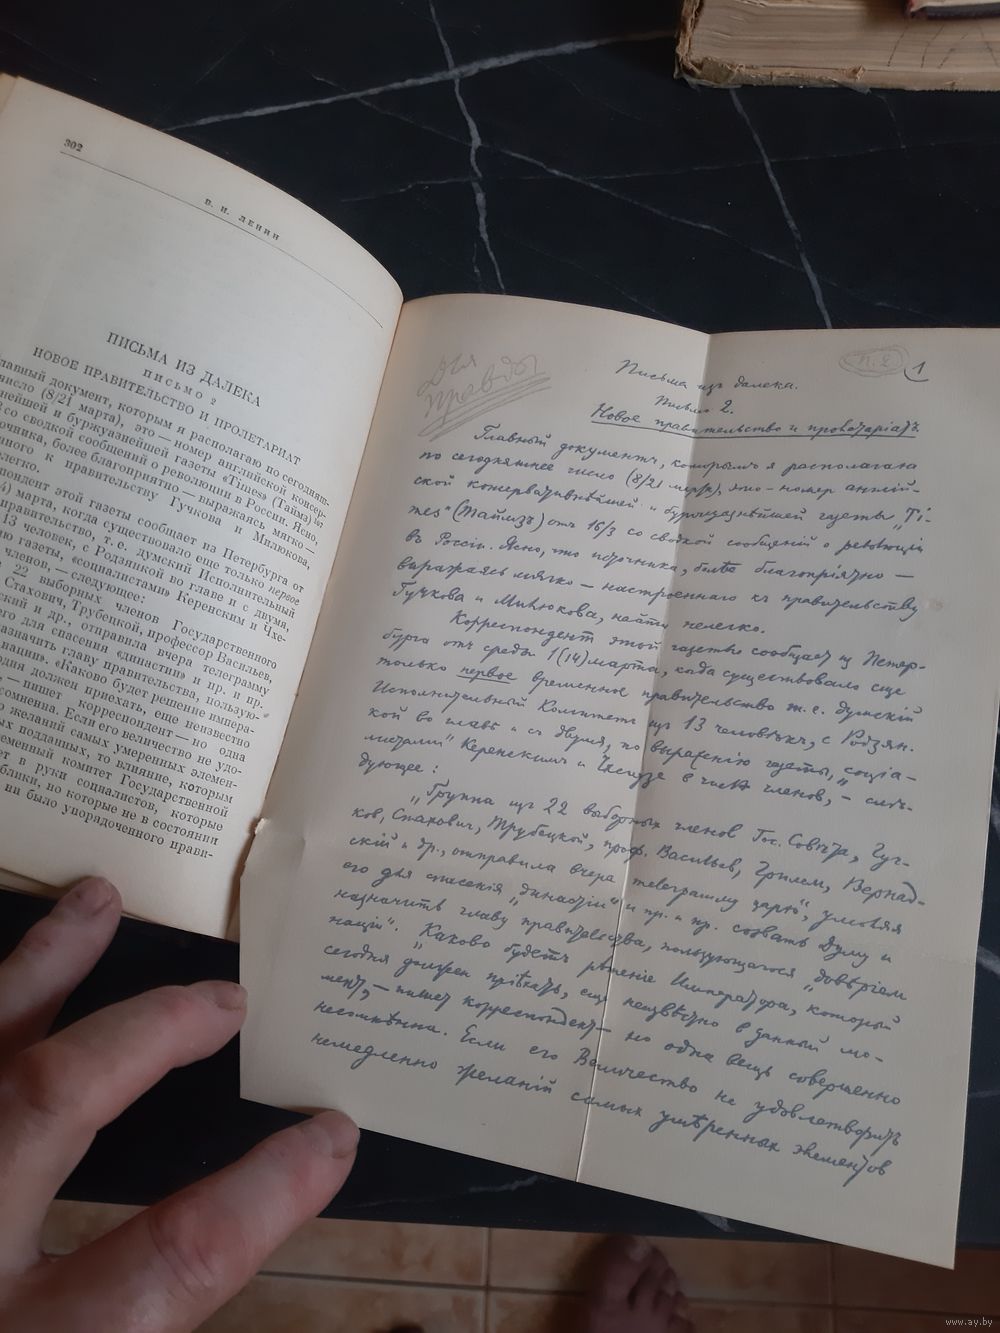 302
В. И. ЛЕНИН
ПИСЬМА ИЗ ДАЛЕКА
ПИСЬМО 2
НОВОЕ ПРАВИТЕЛЬСТВО И ПРОЛЕТАРИАТ
лавный документ, которым я располагаю по сегодняш-
число (8/21 марта), это — номер английской консер-
нейшей и буржуазнейшей газеты «Times» (Таймз)
со сводкой сообщений о революции в России. Ясно,
очника, более благоприятно — выражаясь мягко —
нного к правительству Гучкова и Милюкова,
легко.
пондент этой газеты сообщает из Петербурга от
4) марта, когда существовало еще только первое
правительство, т. е. думский Исполнительный
13 человек, с Родзянкой во главе и с двумя,
ю газеты, «социалистами» Керенским и Чхе-
членов, — следующее:
22 выборных членов Государственного
Стахович, Трубецкой, профессор Васильев,
ский и др., отправила вчера телеграмму
его для спасения «династии» и пр. и пр.
азначить главу правительства, пользую-
нации». «Каково будет решение импера-
одня должен приехать, еще неизвестно
— пишет корреспондент — но одна
сомненна. Если его величество не удо-
о желаний самых умеренных элемен-
ых подданных, то влияние, которым
еменный комитет Государственной
ет в руки социалистов, которые
блики, но которые не в состоянии
ни было упорядоченного прави-
Для
Правды
п. 2
1
Письма изъ далека.
Письмо 2.
Новое правительство и пролетаріатъ
Главный документъ, которымъ я располагаю
по сегодняшнее число (8/21 марта), это — номер англій-
ской консервативнѣйшей и буржуазнѣйшей газеты „Ti-
mes" (Таймзъ) отъ 16/3 со сводкой сообщеній о революціи
въ Россіи. Ясно, что источника, более благопріятно —
выражаясь мягко — настроеннаго къ правительству
Гучкова и Милюкова, найти нелегко.
Корреспондент этой газеты сообщает из Петер-
бурга отъ среды 1 (14) марта, когда существовало еще
только первое временное правительство т. е. думскій
Исполнительный Комитетъ изъ 13 человѣкъ, с Родзян.
кой во главѣ и съ двумя, по выраженію газеты, „соціа-
листами" Керенскимъ и Чхеидзе в числѣ членов, — слѣ-
дующее:
„Группа изъ 22 выборных членов Гос. Совѣта, Гуч-
ков, Стахович, Трубецкой, проф. Васильев, Гриммъ, Вернад-
скій и др., отправила вчера телеграмму царю", умоляя
его для спасенія „династіи" и пр. и пр. созвать Думу и
назначить главу правительства, пользующагося „довѣріем
націи". „Каково будетъ рѣшеніе Императора, который
сегодня должен пріѣхать, еще неизвѣстно в данный мо-
мент, — пишет корреспондент — но одна вещь совершенно
несомнѣнна. Если его Величество не удовлетворитъ
немедленно желаній самых умѣренных элементов
www.ay.by